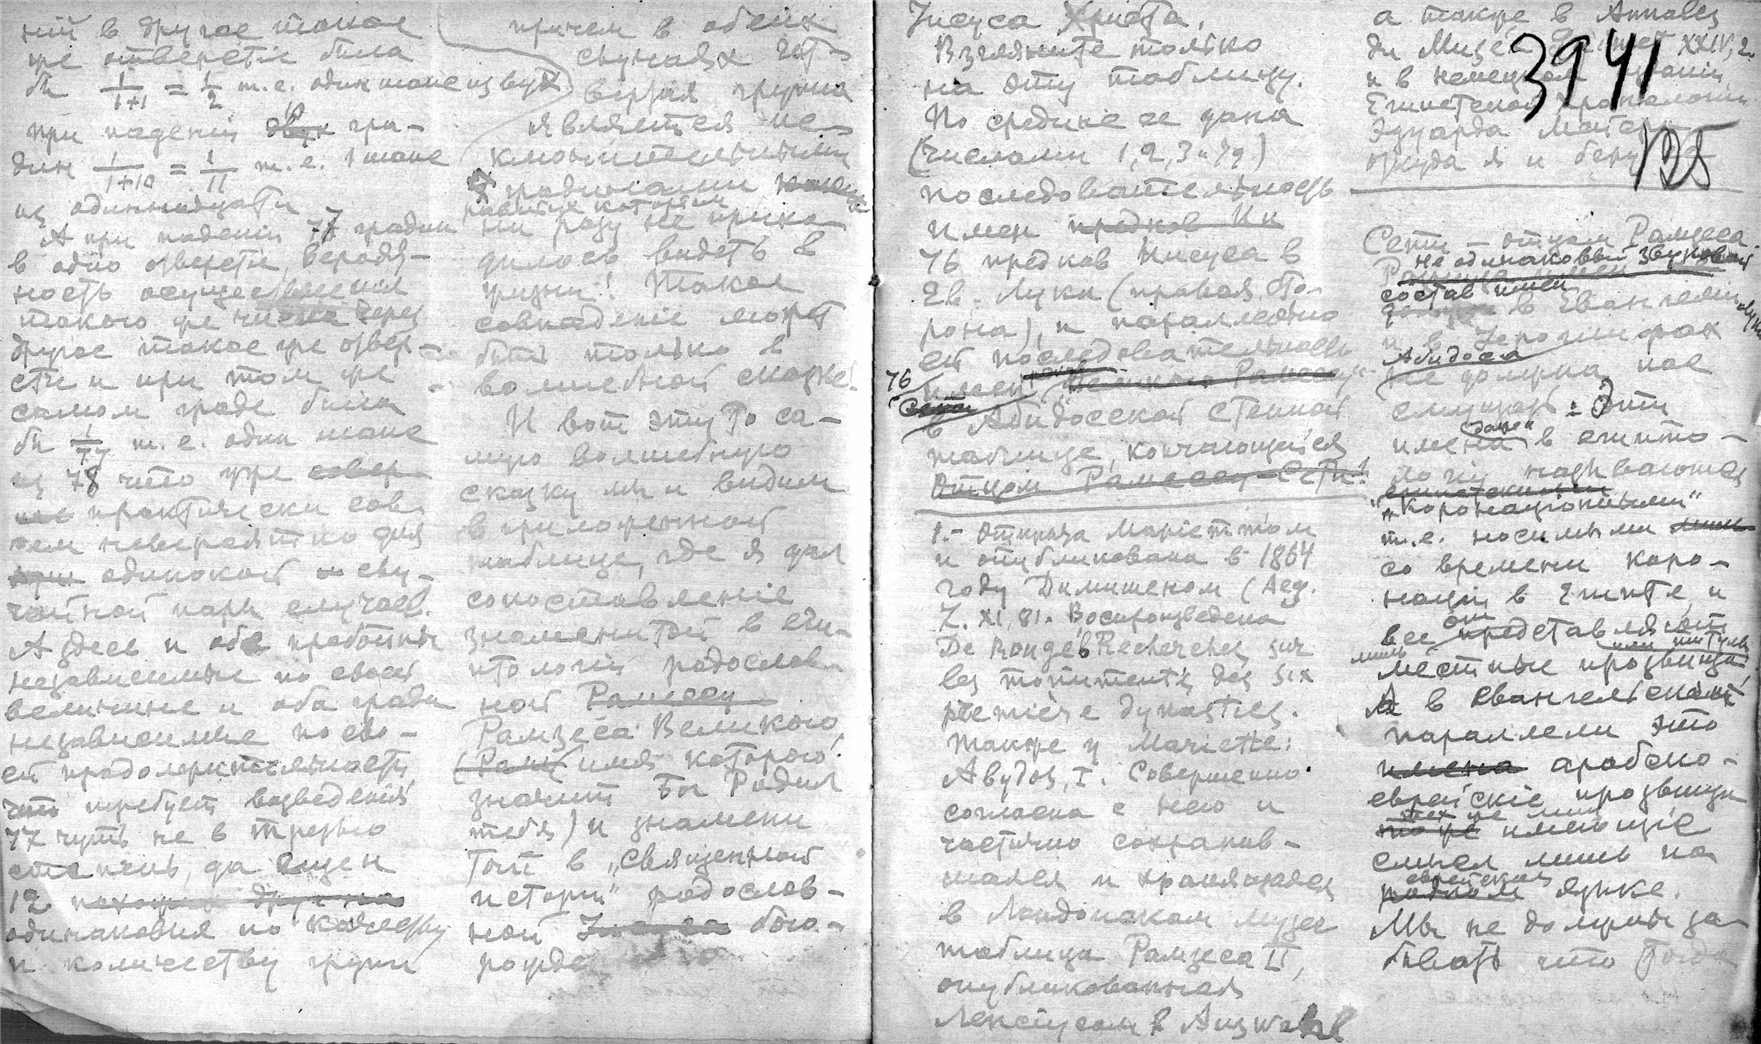 ній в другое такое
же отверетіе была
бы 1/1+1 = 1/2 т.е. один шанс из двух
при паденіи гра-
дин 1/1+10 = 1/11 т.е. 1 шанс
из одиннадцати
А при паденіи 77 градин
в одно отверстіе, вероят-
ность осуществленія
такого же числа через
другое такое же отвер-
стіе и при том же
самом граде была
бы 1/77 т.е. один шанс
из 78 что уже совер-
практически сов-
сем невероятно для
одинокой слу-
чайной пары случаев.
А здесь и обе пробоины
независимые по своей
величине и оба града
независимые по сво-
ей продолжительности,
что требует возведенія
77 чуть не в третью
степень, да ещен
12 похожих друг на
одинаковыя по качеству
и количеству групп
причем в обеих
случаях чет-
вертая группа
является ис-
ключительными
градинами
каких которыя
ни разу не прихо-
дилось видеть в
жизни! Такое
совпаденіе может
быть только в
волшебной сказке!
И вот эту то са-
мую волшебную
сказку мы и видим
в приложенной
таблице, где я дал
сопоставленіе
знаменитой в еги-
птологіи родослов-
ной Рамзесу
Рамзеса Великого,
(Рамз имя которого
значит Бог Родил
тебя) и знамени
той в „священной
исторіи" родослов-
ной бого-
рожде
Іисуса Христа.
Взгляните только
на эту таблицу.
По средине ее дана
(числами 1, 2, 3 и 79.)
последовательность
имен предков Ии
76 предков Іисуса в
Ев. Луки (правая сто-
рона), и параллельно
ей последовательность
76
имен
Сети
в Абидосской стенной
таблице, кончающейся
отцом Рамзеса - Сети!
1.- Открыта Маріеттом
и опубликована в 1864
году Дюмихеном (Aeg.
Z. XI, 81. Воспроизведена
De Rougé в Recherches sur
les monuments des six
premiere dynasties.
также у Mariette:
Abydos, I. Совершенно
согласна с нею и
частично сохранив-
шаяся и хранящаяся
в Лондонском музее
таблица Рамзеса II,
опубликованная
Лепсіусом в Auswahl
а также в Annales
du Musée XXIV, 2.
и в немецком изданіи
Египетской хронологіи
Эдуарда Мейера
откуда я и беру
3941
125
Сети - отцом Рамзеса
Не одинаковый звуковой
состав имен
в Евангеліи Луки
и в Іероглифах
Абидоса
не должна нас
смущать: Эти
имена даже в египто-
логіи называются
египетскими
„Коронаціонными"
т.е. носимыми
со времени коро-
націи в Египте, и
все они представляют
лишь или титулы
местные прозвища
А в Евангельской
параллели это
имена арабско-
еврейскіе прозвища
тех же лиц
то же имеющіе
смысл лишь на
еврейском
родном языке.
Мы не должны за-
бывать что тогда